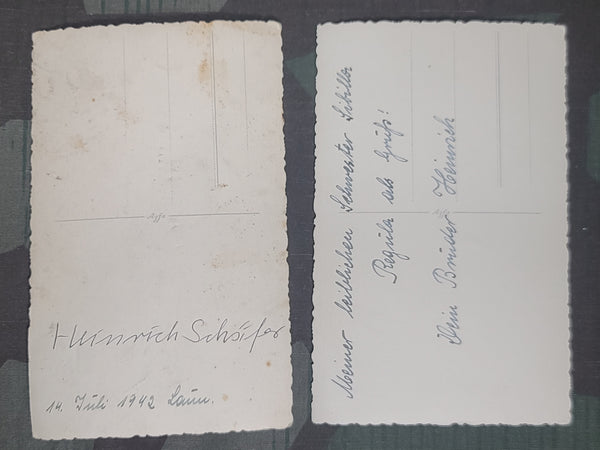 Agfa
Heinrich Schäfer
14. Juli 1942 Laun.
Meiner leiblichen Schwester Sibilla
Regula als Gruß!
Dein Bruder Heinrich